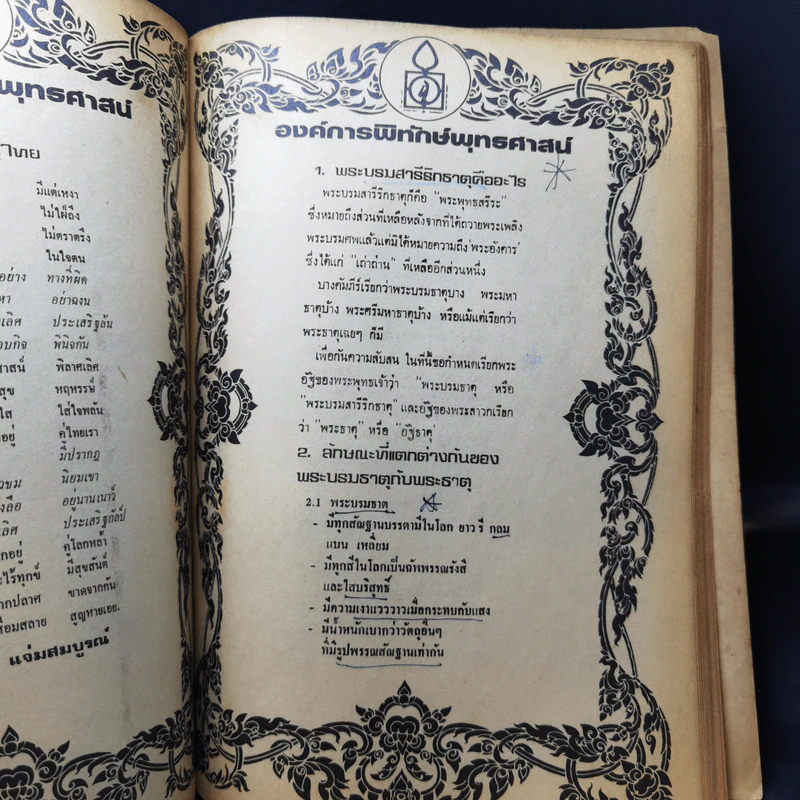 พุทธศาสน์
ไทย
มีแต่เหงา
ไม่ใฝ่ถึง
ไม่ตราตรึง
ในใจตน
อย่าง ทางที่ผิด
หา อย่าฉงน
เลิศ ประเสริฐล้น
วบกิจ พินิจกัน
ศาสน์ พิลาศเลิศ
สุข หฤหรรษ์
ใส ใส่ใจพลัน
อยู่ คู่ไทยเรา
มีปรากฏ
วขม นิยมเขา
งลือ อยู่นานเนาว์
เลิศ ประเสริฐกัลป์
กอยู่ คู่โลกหล้า
ะไร้ทุกข์ มีสุขสันต์
ากปลาศ ขาดจากกัน
ื่อมสลาย สูญหายเอย.
แจ่มสมบูรณ์
องค์การพิทักษ์พุทธศาสน์
1. พระบรมสารีริกธาตุคืออะไร
พระบรมสารีริกธาตุก็คือ "พระพุทธสรีระ"
ซึ่งหมายถึงส่วนที่เหลือหลังจากที่ได้ถวายพระเพลิง
พระบรมศพแล้วแต่มิได้หมายความถึง'พระอังคาร'
ซึ่งได้แก่ "เถ้าถ่าน" ที่เหลืออีกส่วนหนึ่ง
บางคัมภีร์เรียกว่าพระบรมธาตุบาง พระมหา
ธาตุบ้าง พระศรีมหาธาตุบ้าง หรือแม้แต่เรียกว่า
พระธาตุเฉยๆ ก็มี
เพื่อกันความสับสน ในที่นี้ขอกำหนดเรียกพระ
อัฐิของพระพุทธเจ้าว่า "พระบรมธาตุ หรือ
"พระบรมสารีริกธาตุ" และอัฐิของพระสาวกเรียก
ว่า "พระธาตุ" หรือ "อัฐิธาตุ'
2. ลักษณะที่แตกต่างกันของ
พระบรมธาตุกับพระธาตุ
2.1 พระบรมธาตุ
- มีทุกสัณฐานบรรดามีในโลก ยาว รี กลม
แบน เหลี่ยม
- มีทุกสีในโลกเป็นฉัพพรรณรังสี
และใสบริสุทธิ์
- มีความเงาแวววาวเมื่อกระทบกับแสง
- มีน้ำหนักเบากว่าวัตถุอื่นๆ
ที่มีรูปพรรณสัณฐานเท่ากัน